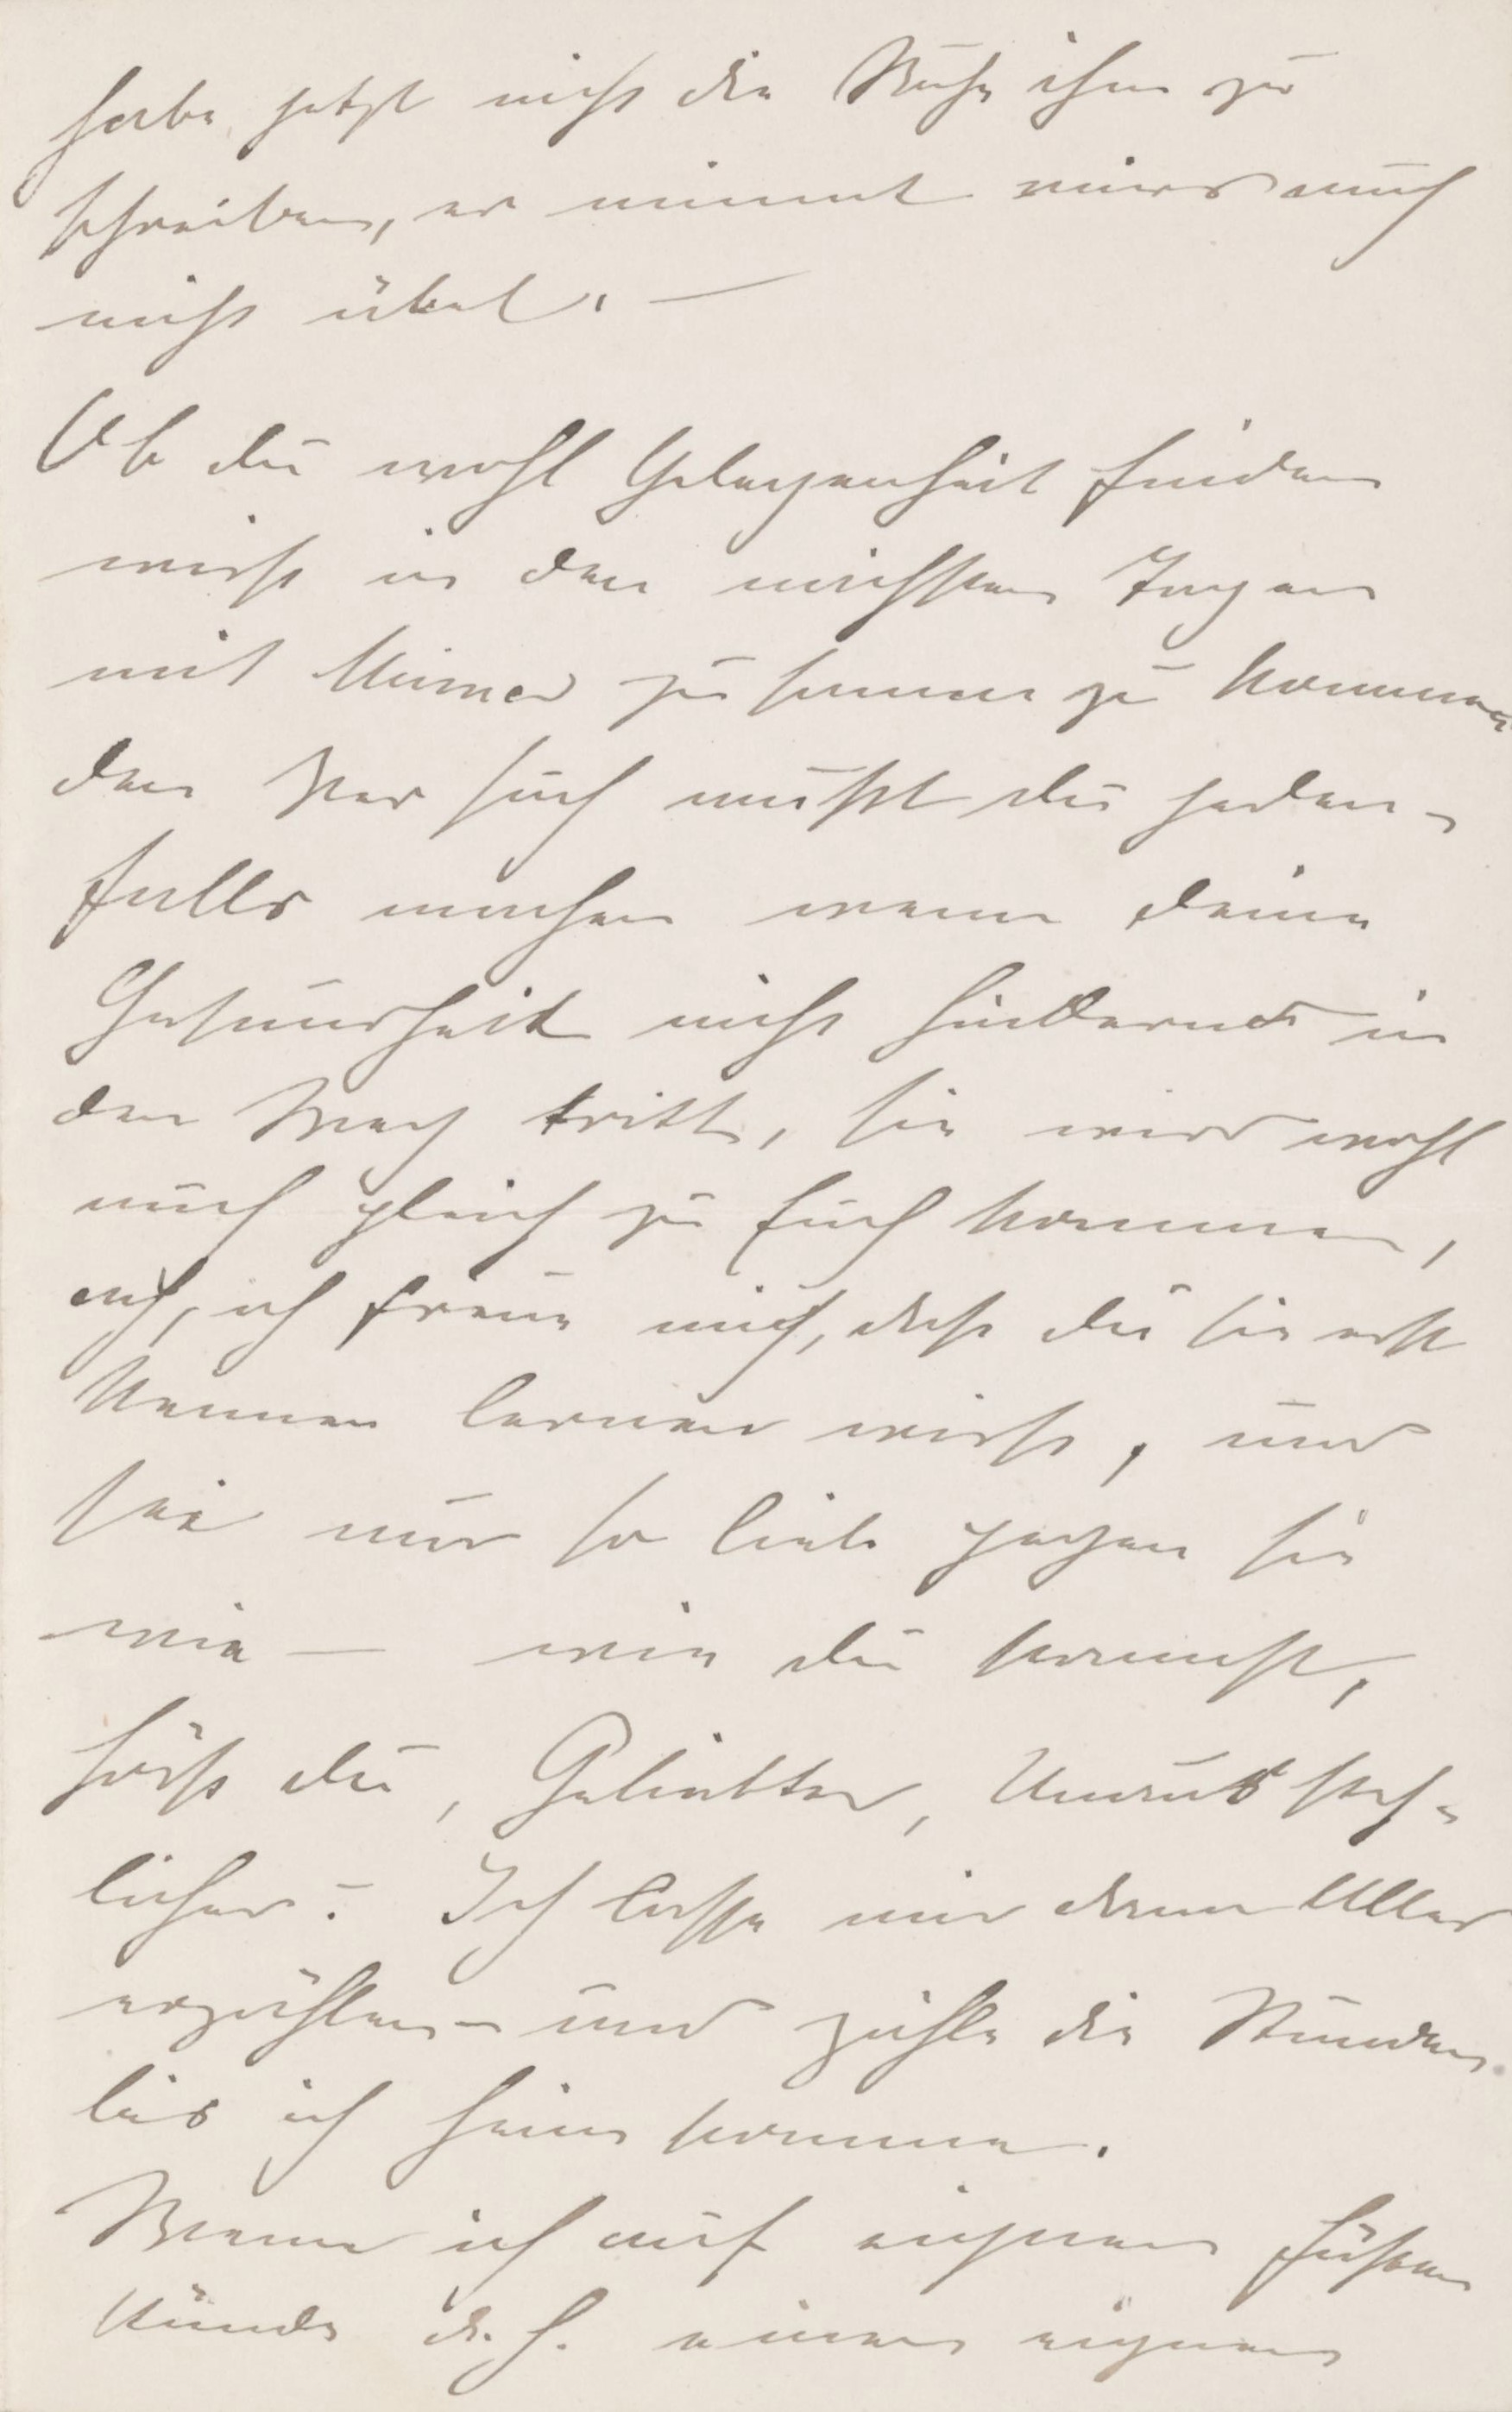 habe jetzt nicht die Ruhe ihm zu
schreiben, er nimmt mirs auch
nicht übel. —
Ob du wohl Gelegenheit finden
wirst in den nächsten Tagen
mit Mima zusammen zu kommen
den Versuch mußt du jeden-
falls machen wenn deine
Gesundheit nicht hindernd in
den Weg tritt, sie wird wohl
auch gleich zu Euch kommen,
ach, ich freue mich, daß du sie erst
kennen lernen wirst, und
sei nur so lieb gegen sie
wie — wie du kannst,
hörst du, Geliebter, Unaussteh-
licher? Ich lasse mir dann Alles
erzählen – und zähle die Stunden
bis ich heim komme.
Wenn ich auf eignen Füßen
stünde d. h. einen eignen